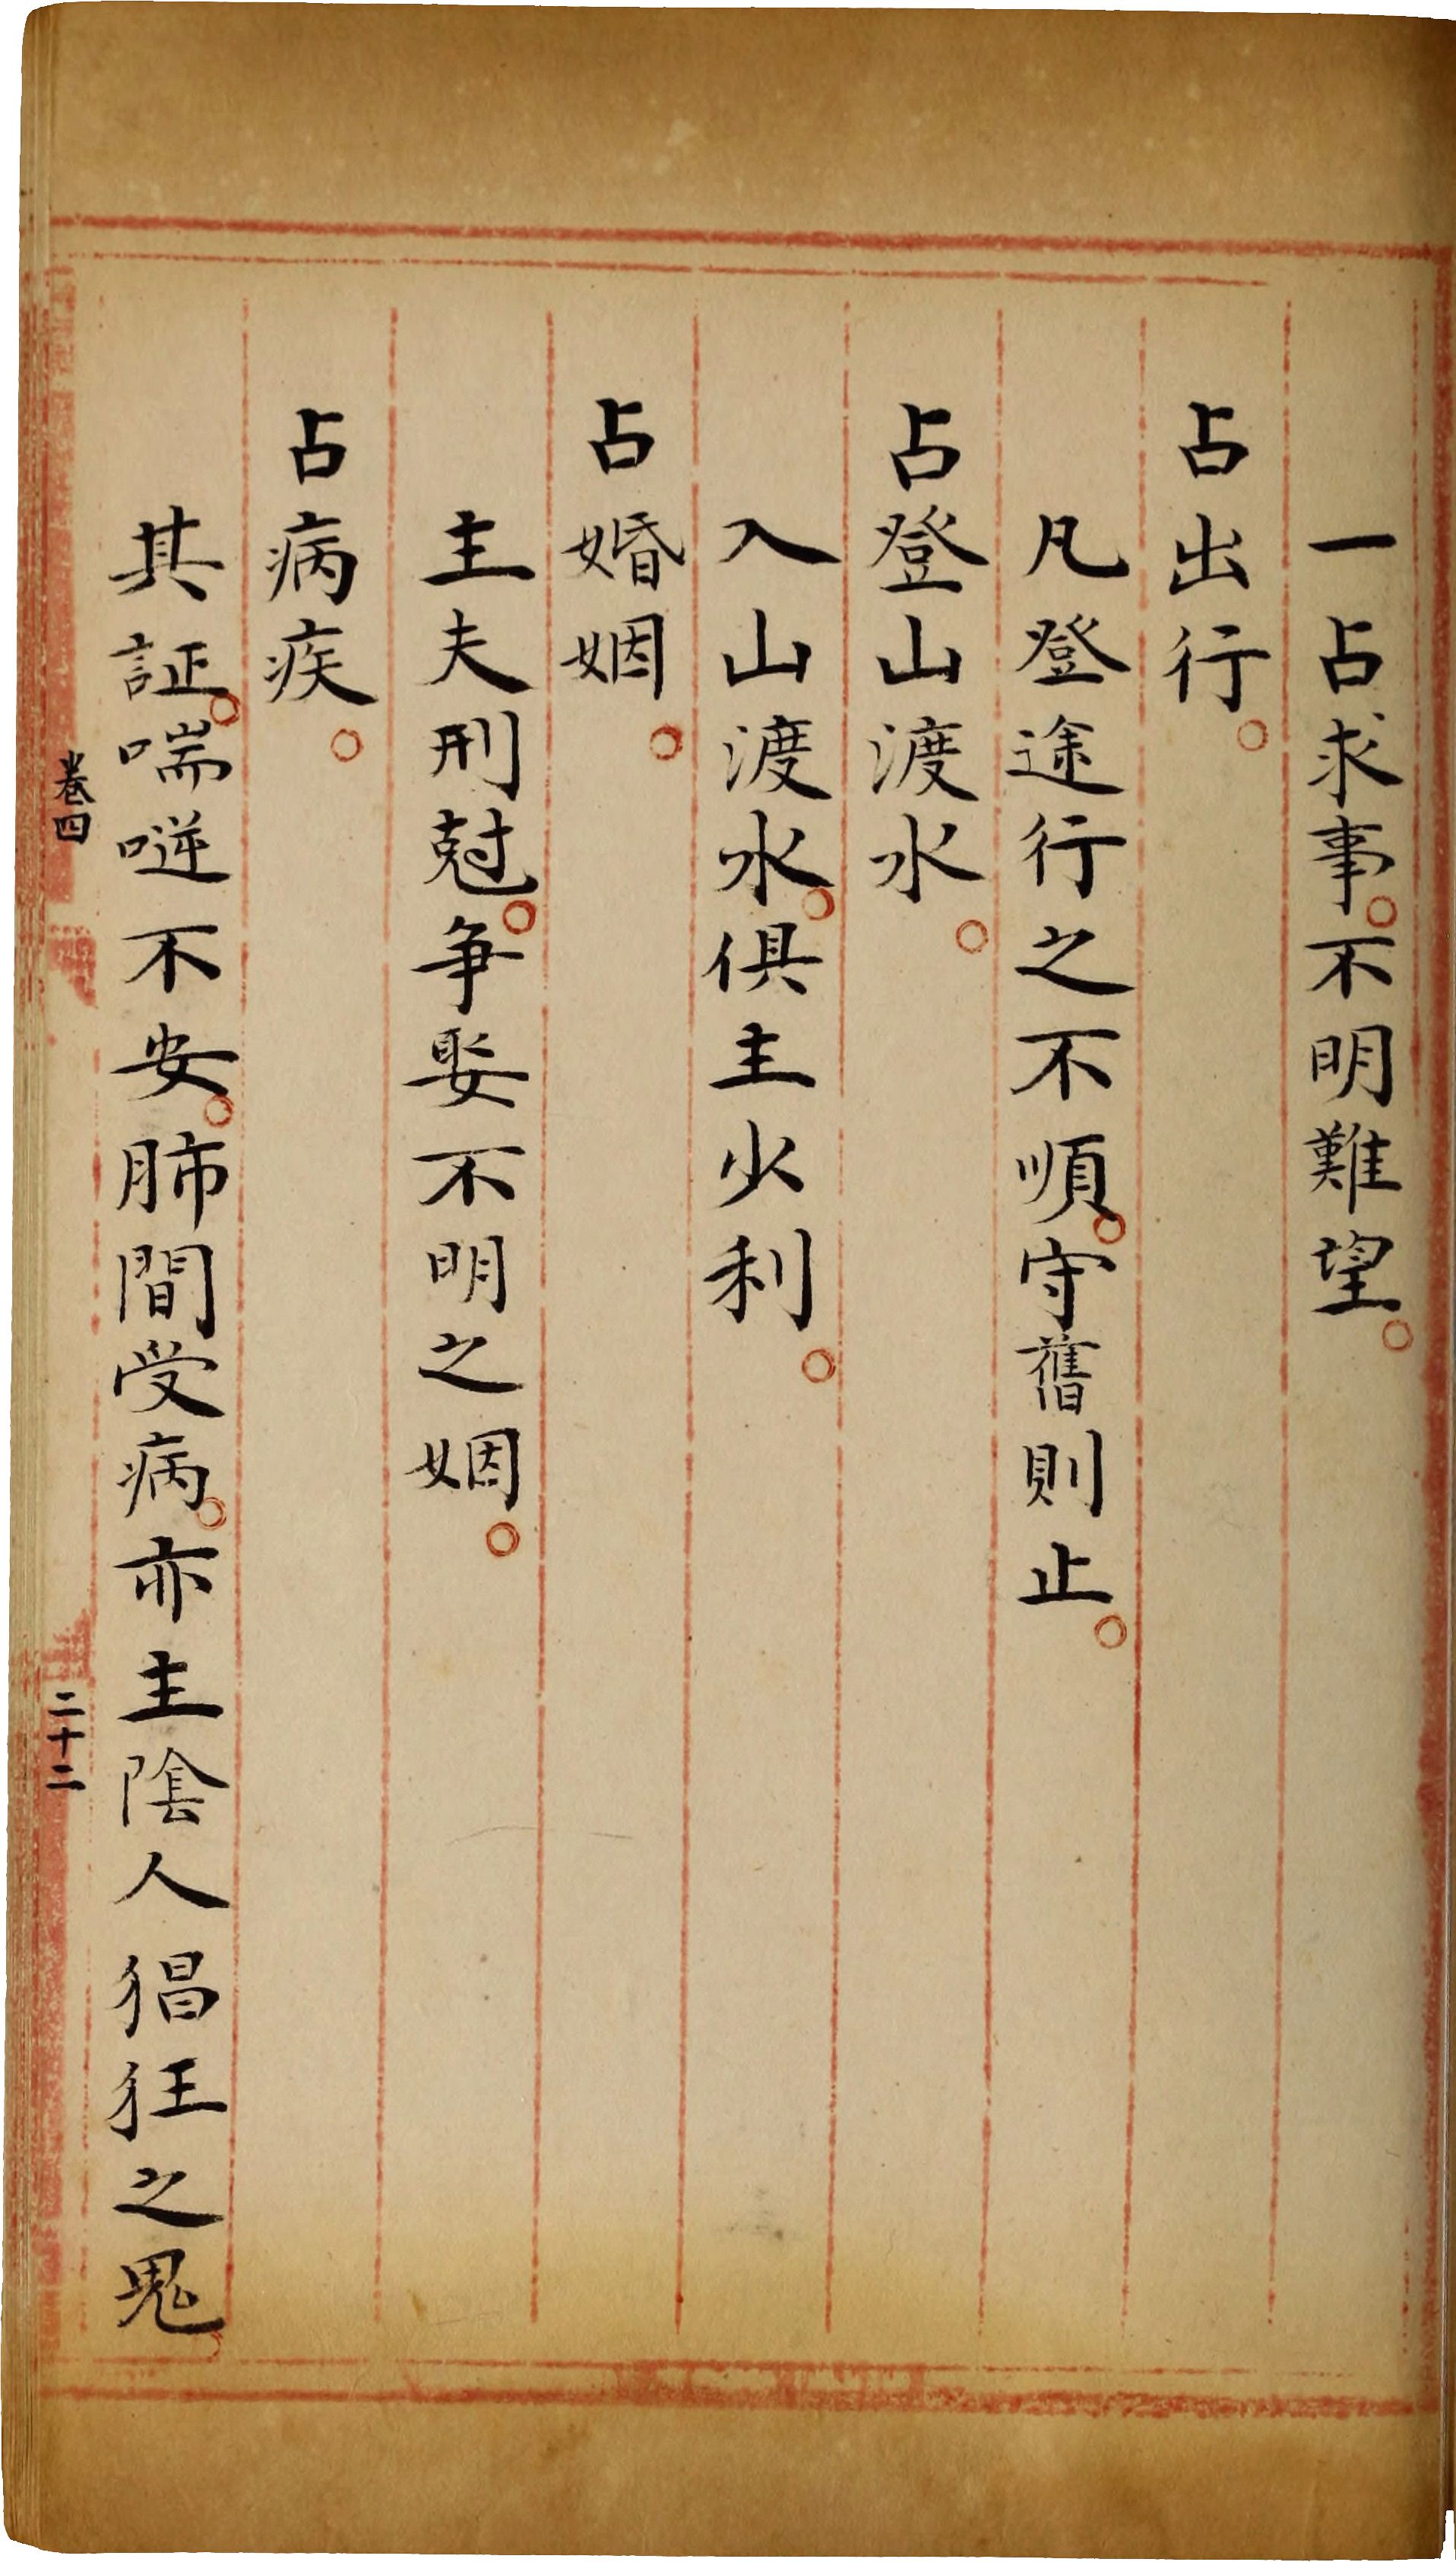 一占求事。不明難望。
占出行。
凡登途行之不順。守舊則止。
占登山渡水。
入山渡水。俱主少利。
占婚姻。
主夫刑尅。争娶不明之姻。
占病疾。
其証。喘㖾不安。肺間受病。亦主陰人猖狂之鬼。
卷四
二十二